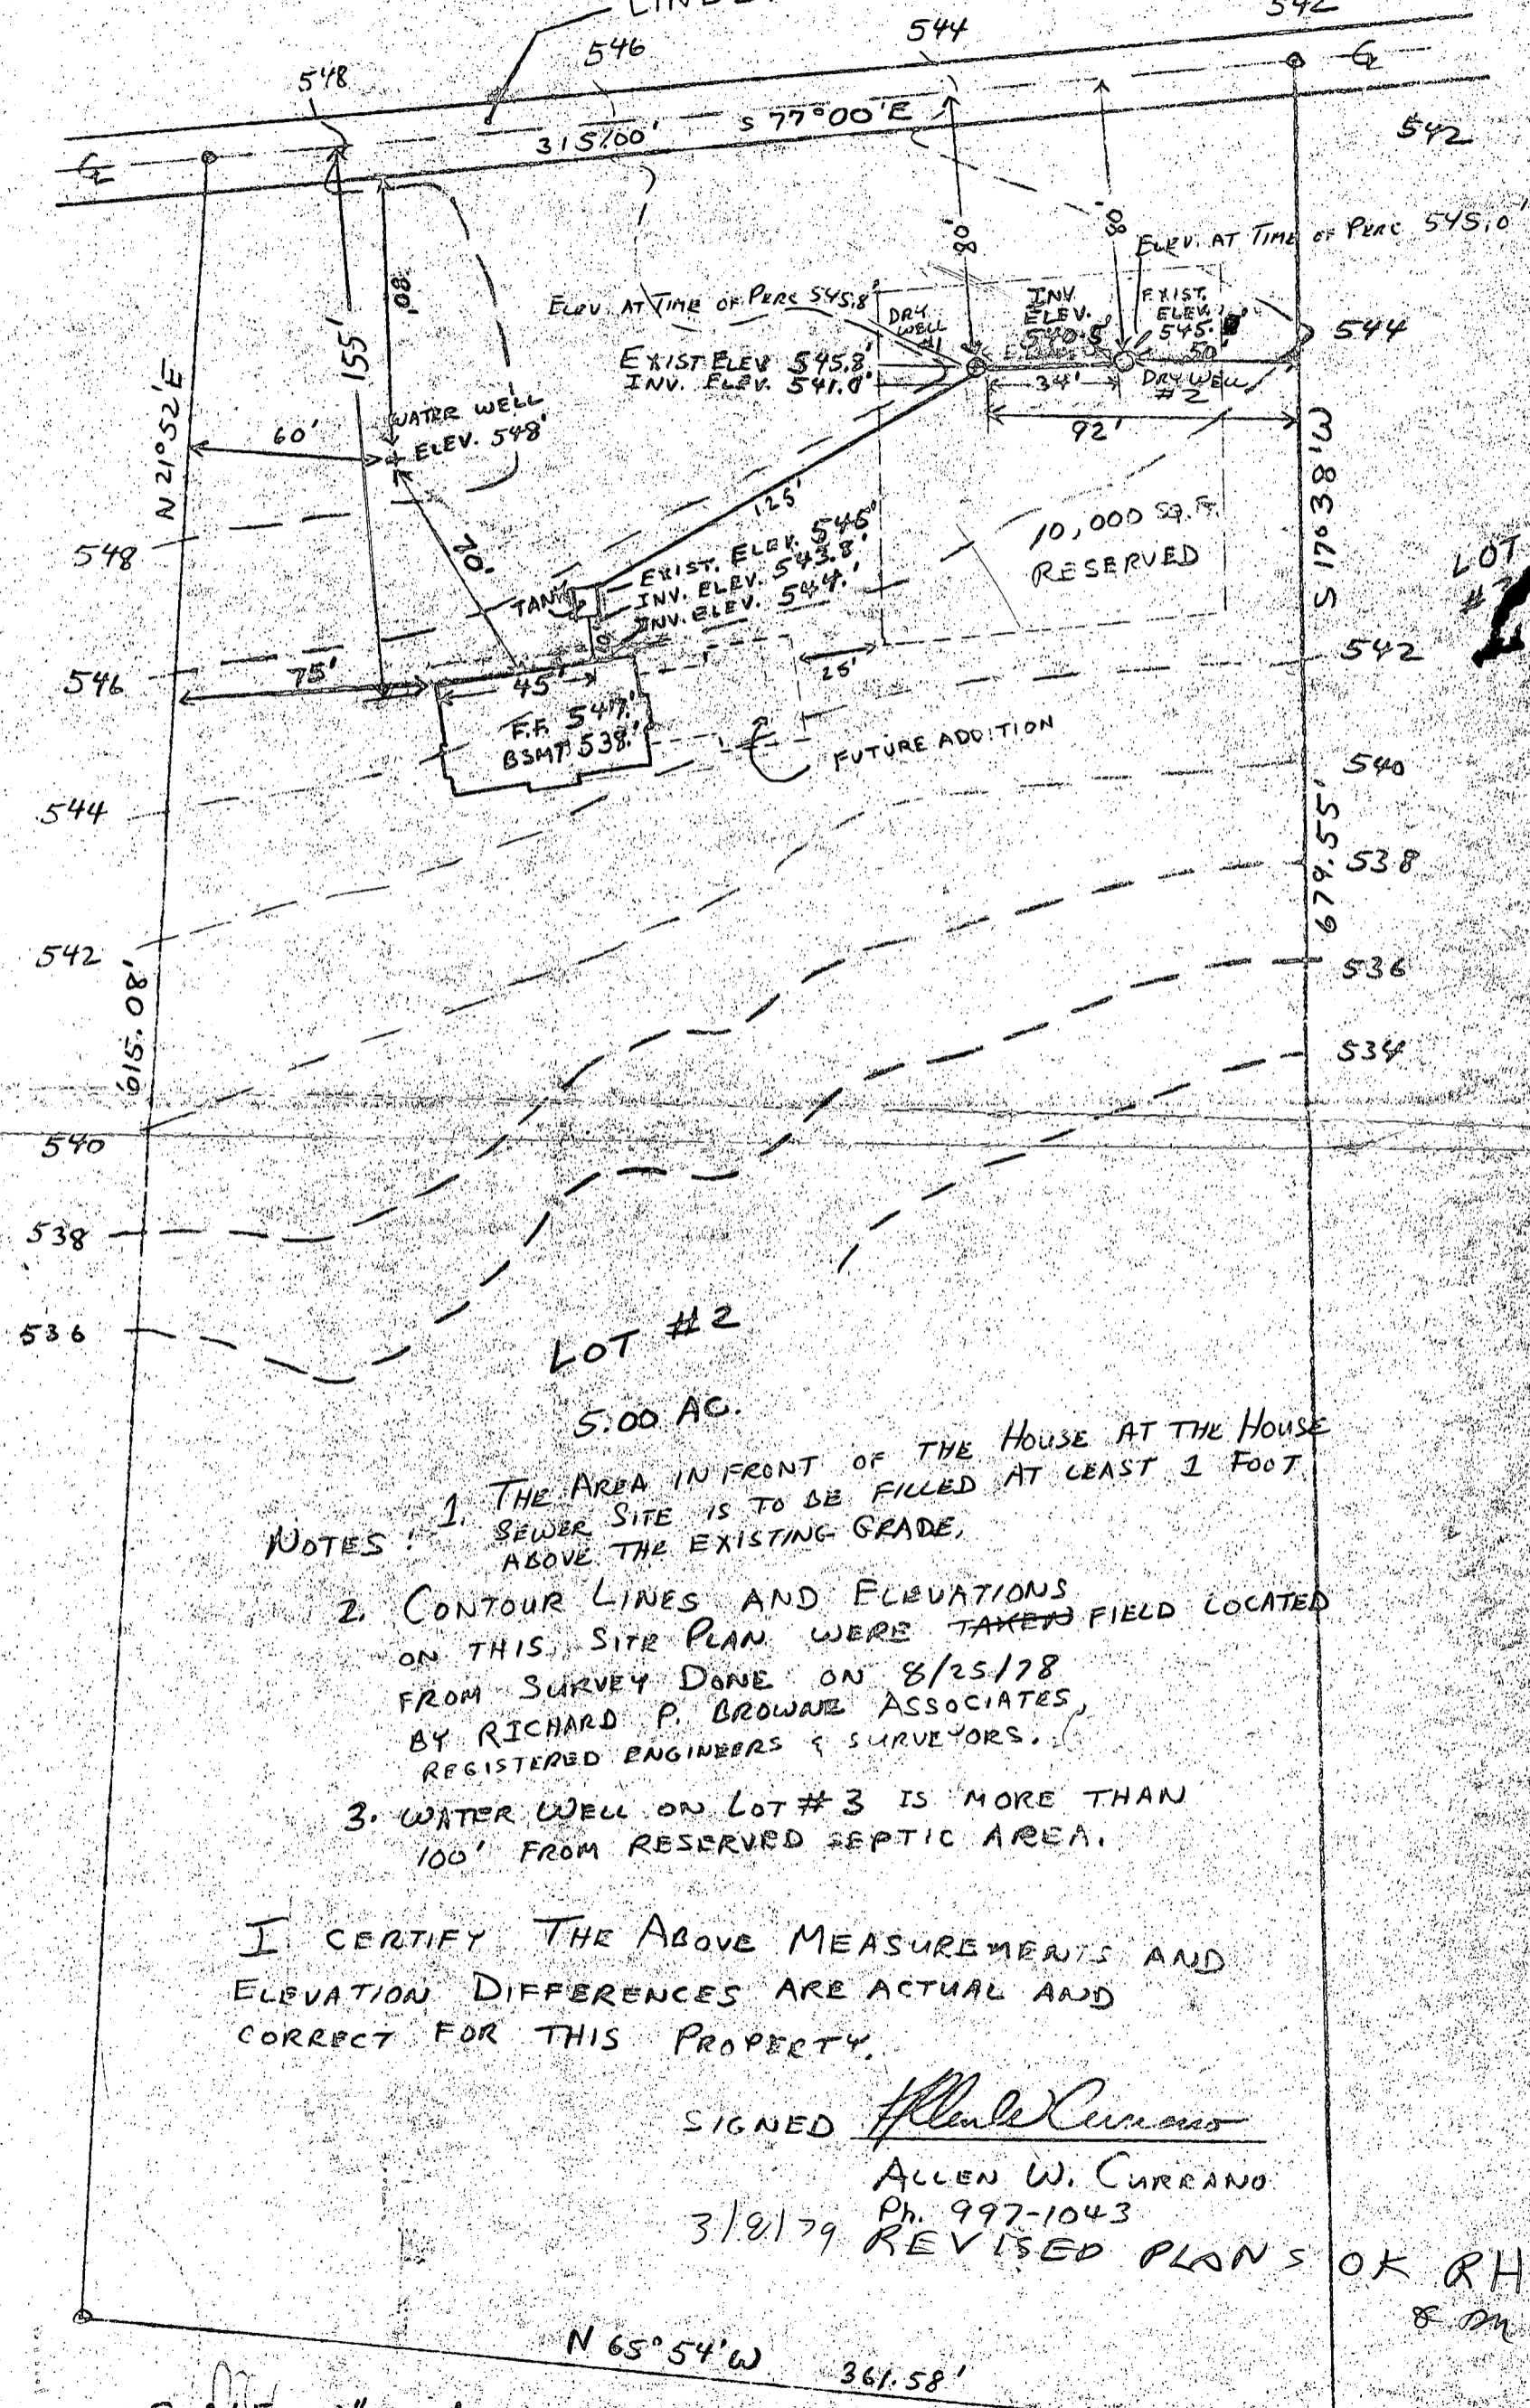 542
544
546
548
542
S 77°00'E
315.00'
80'
80'
80'
155'
ELEV. AT TIME OF PERC 545.0'
ELEV. AT TIME OF PERC 545.8'
DRY WELL #1
INV. ELEV. 540.5'
EXIST. ELEV. 545.
544
EXIST ELEV 545.8'
INV. ELEV. 541.0'
50'
34'
DRY WELL #2
92'
N 21°52'E
60'
WATER WELL
ELEV. 548'
S 17°38'W
125'
10,000 SQ. FT.
RESERVED
548
70'
TANK
EXIST. ELEV. 545'
INV. ELEV. 543.8'
INV. ELEV. 544.'
LOT
542
546
75'
45'
25'
F.F. 547.'
BSMT. 538.'
FUTURE ADDITION
540
544
679.55'
538
542
536
615.08'
534
540
538
536
LOT #2
5.00 AC.
NOTES: 1. THE AREA IN FRONT OF THE HOUSE AT THE HOUSE
SEWER SITE IS TO BE FILLED AT LEAST 1 FOOT
ABOVE THE EXISTING GRADE.
2. CONTOUR LINES AND ELEVATIONS
ON THIS SITE PLAN WERE TAKEN FIELD LOCATED
FROM SURVEY DONE ON 8/25/78
BY RICHARD P. BROWNE ASSOCIATES,
REGISTERED ENGINEERS & SURVEYORS.
3. WATER WELL ON LOT #3 IS MORE THAN
100' FROM RESERVED SEPTIC AREA.
I CERTIFY THE ABOVE MEASUREMENTS AND
ELEVATION DIFFERENCES ARE ACTUAL AND
CORRECT FOR THIS PROPERTY.
SIGNED Allen W Currano
ALLEN W. CURRANO
Ph. 997-1043
3/8/79 REVISED PLANS OK RH
N 65°54'W 361.58'